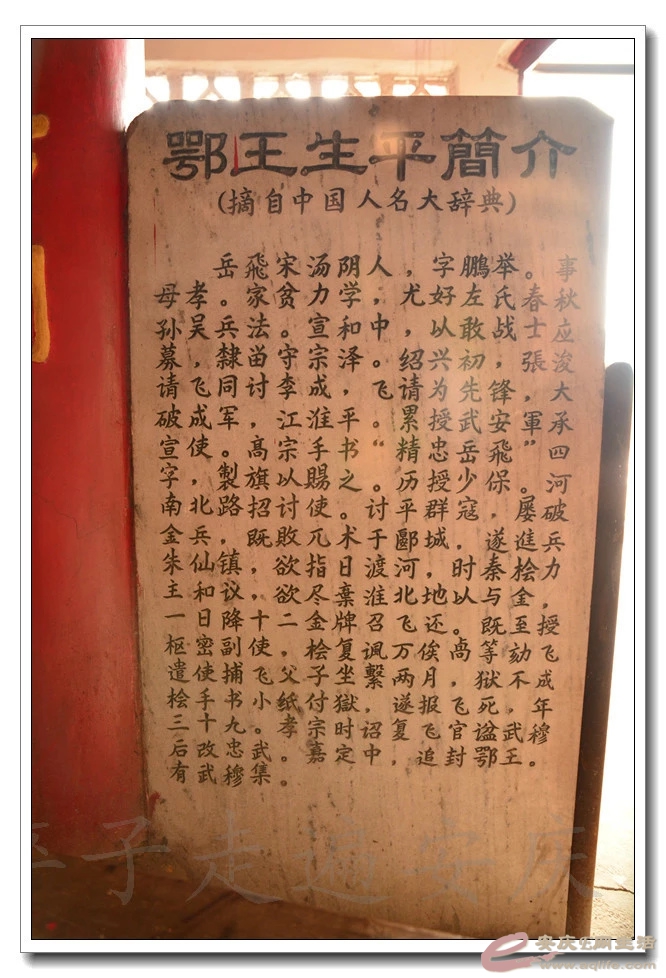 鄂王生平簡介
(摘自中国人名大辞典)
岳飛宋汤阴人,字鵬举。事
母孝。家贫力学,尤好左氏春秋
孙吴兵法。宣和中,以敢战士应
募,隸畄守宗泽。绍兴初,張浚
请飞同讨李成,飞请为先锋,大
破成军,江淮平。累授武安軍承
宣使。高宗手书“精忠岳飛”四
字,製旗以賜之。历授少保。河
南北路招讨使。讨平群寇,屡破
金兵,既敗兀术于郾城,遂進兵
朱仙镇,欲指日渡河,时秦桧力
主和议,欲尽棄淮北地以与金,
一日降十二金牌召飞还。既至授
枢密副使,桧复讽万俟卨等劾飞
遣使捕飞父子坐繫两月,狱不成
桧手书小纸付獄,遂报飞死,年
三十九。孝宗时诏复飞官谥武穆
后改忠武。嘉定中,追封鄂王。
有武穆集。
子走遍安庆
www.aqlife.com